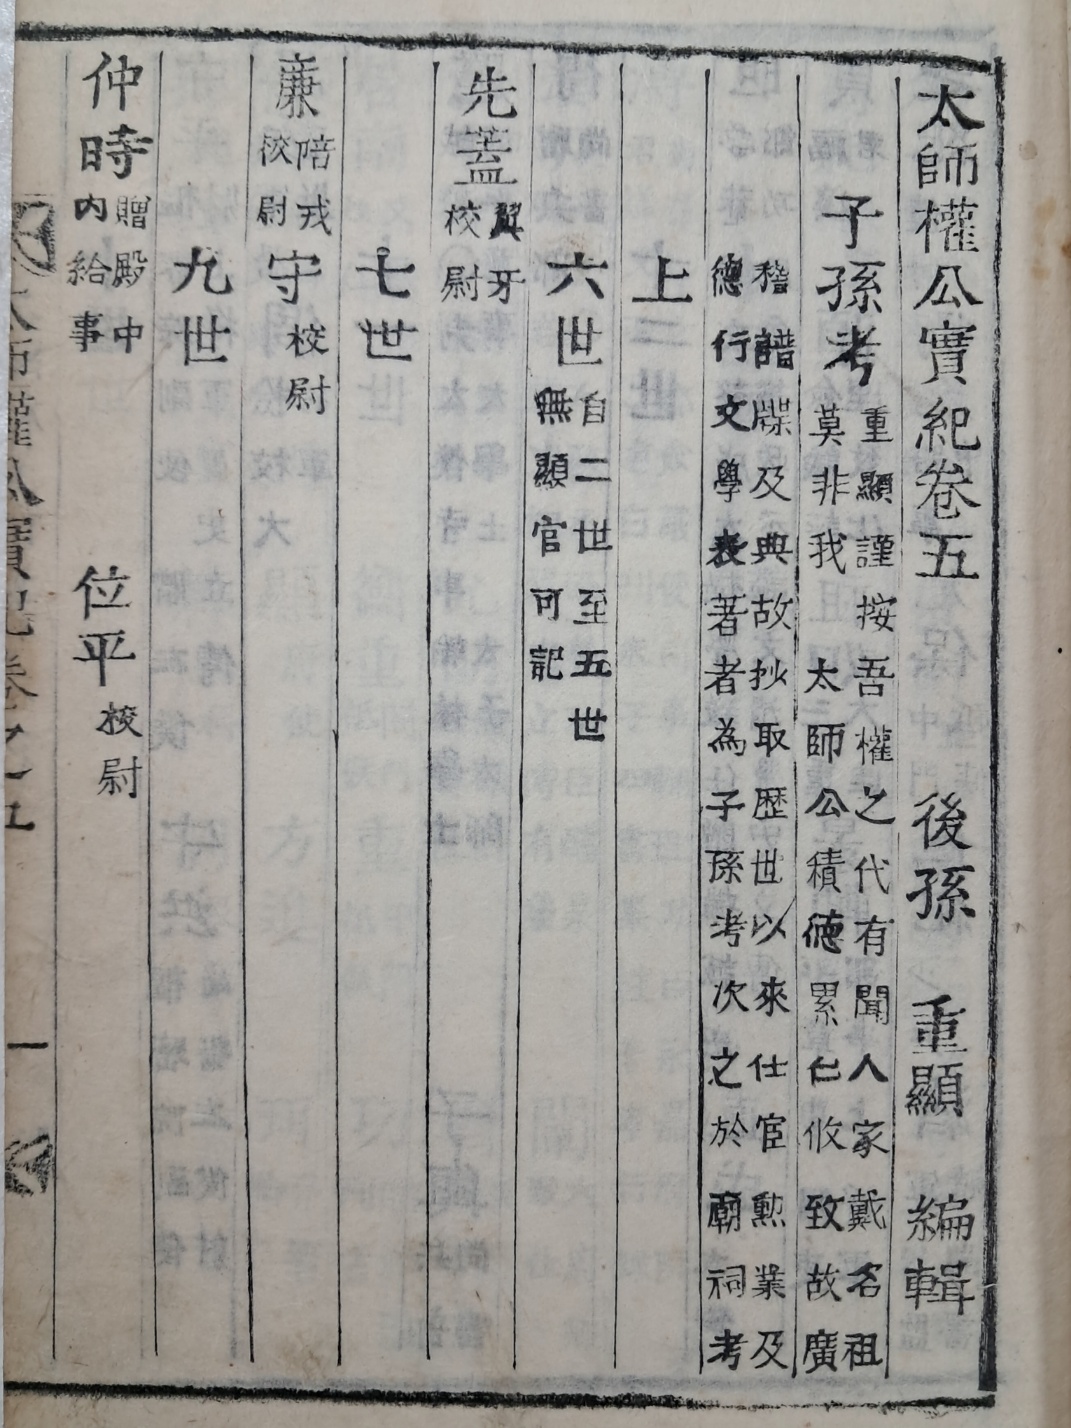 太師權公實紀卷五 後孫 重顯 編輯
子孫考 重顯謹按吾權之代有聞人家戴名祖
莫非我 太師公積德累仁攸致故廣
稽譜牒及典故抄取歴世以來仕宦勲業及
德行文學表著者為子孫考次之於廟祠考
上
六世 自二世至五世
無顯官可記
先蓋 翼牙
校尉
七世
廉 陪戎
校尉 守 校尉
九世
仲時 贈殿中
内給事 位平 校尉
太師權公實紀卷之五 一